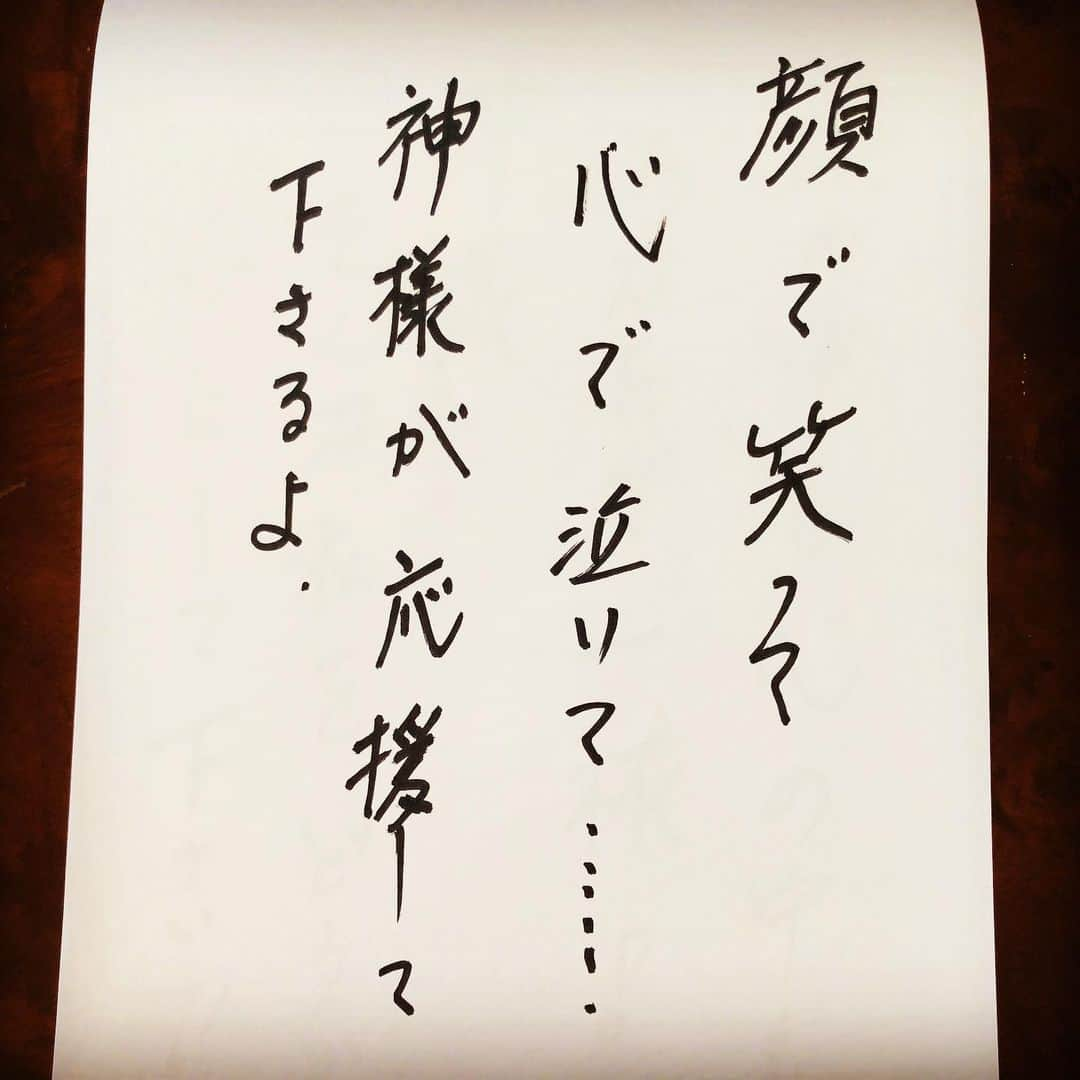 顔で笑って
心で泣いて……
神様が応援して
下さるよ.